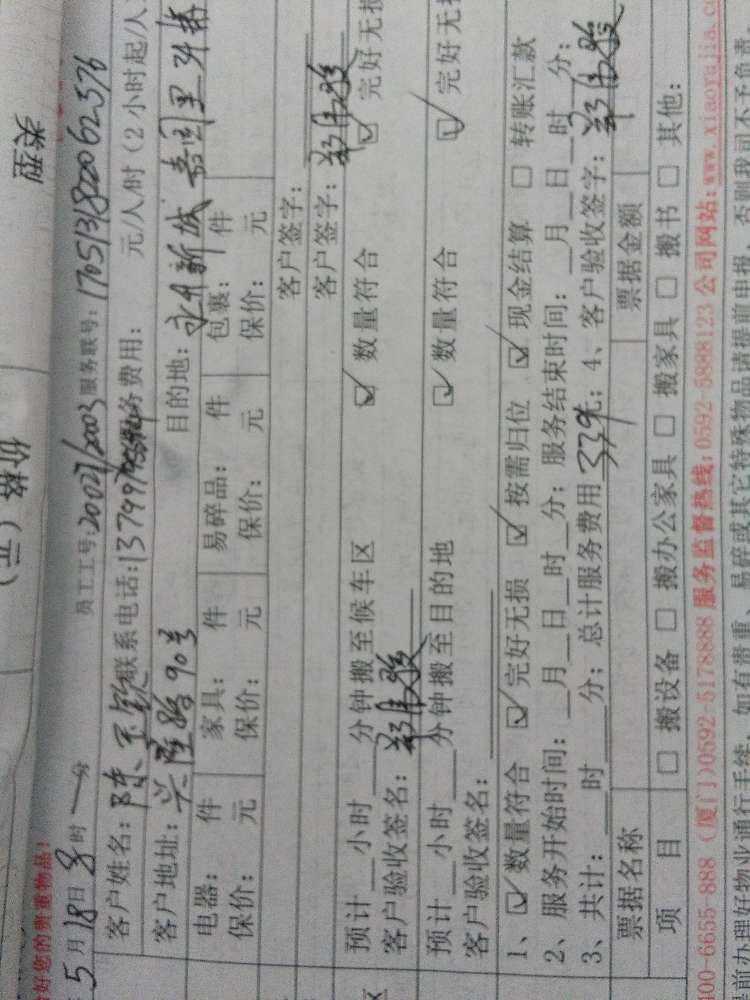 类型
价格（元）
好您的贵重物品:
5月18日8时一分 员工工号:20027/2003 服务联号:170513182062376
客户姓名:陈 联系电话:137 务费用: 元/人/时（2小时起/人
客户地址:兴隆路90号 目的地:
电器: 件 家具: 件 易碎品: 件 包裹: 件
保价: 元 保价: 元 保价: 元 保价: 元
客户签字:
客户签字:
预计__小时__分钟搬至候车区 ☑数量符合 ☑完好无损
客户验收签名:
预计__小时__分钟搬至目的地 ☑数量符合 ☑完好无损
客户验收签名:
1、☑数量符合 ☑完好无损 ☑按需归位 ☑现金结算 □转账汇款
2、服务开始时间:__月__日__时__分; 服务结束时间:__月__日__时__分;
3、共计:__时__分; 总计服务费用 ; 4、客户验收签字:
票据名称 票据金额
项目 □搬设备 □搬办公家具 □搬家具 □搬书 □其他:
00-6655-888 (厦门)0592-5178888 服务监督热线:0592-5888123 公司网站:www.xiaoyujia.c
前办理好物业通行手续，如有贵重、易碎或其它特殊物品请提前申报，否则我司不予负责。